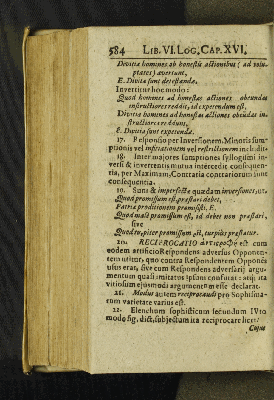 584 LIB. VI. LOG. CAP. XVI.
Divitiæ homines ab honestis actionibus (ad volu-
ptates) avertunt,
E. Divitiæ sunt detestandæ.
Invertitur hoc modo:
Quod homines ad honestas actiones obeundas
instructiores reddit, id expetendum est,
Divitiæ homines ad honestas actiones obeundas in-
structiores reddunt,
E. Divitiæ sunt expetendæ.
17. Responsio per Inversionem, Minoris sum-
ptionis vel inficiationem vel restrictionem includit.
18. Inter majores sumptiones syllogismi in-
versi & invertentis mutua intercedit consequen-
tia, per Maximam, Contraria contrariorum sunt
consequentia.
19. Sunt & imperfectæ quædam inversiones, ut,
Quod promissum est, præstari debet,
Patriæ proditionem promisisti. E.
Quod male promissum est, id debet non præstari,
sive
Quod turpiter promissum est, turpius præstatur.
20. RECIPROCATIO est cum
eodem artificio Respondens adversus Opponen-
tem utitur, quo contra Respondentem Opponens
usus erat, sive cum Respondens adversarii argu-
mentum quasi imitatus ipsum confutat: aut ita
vitiosum ejusmodi argumentum esse declarat.
21. Modus autem reciprocandi pro Sophisma-
tum varietate varius est.
22. Elenchum sophisticum secundum IVto
modo fig. dict. subjectum ita reciprocare licet:
Cujus